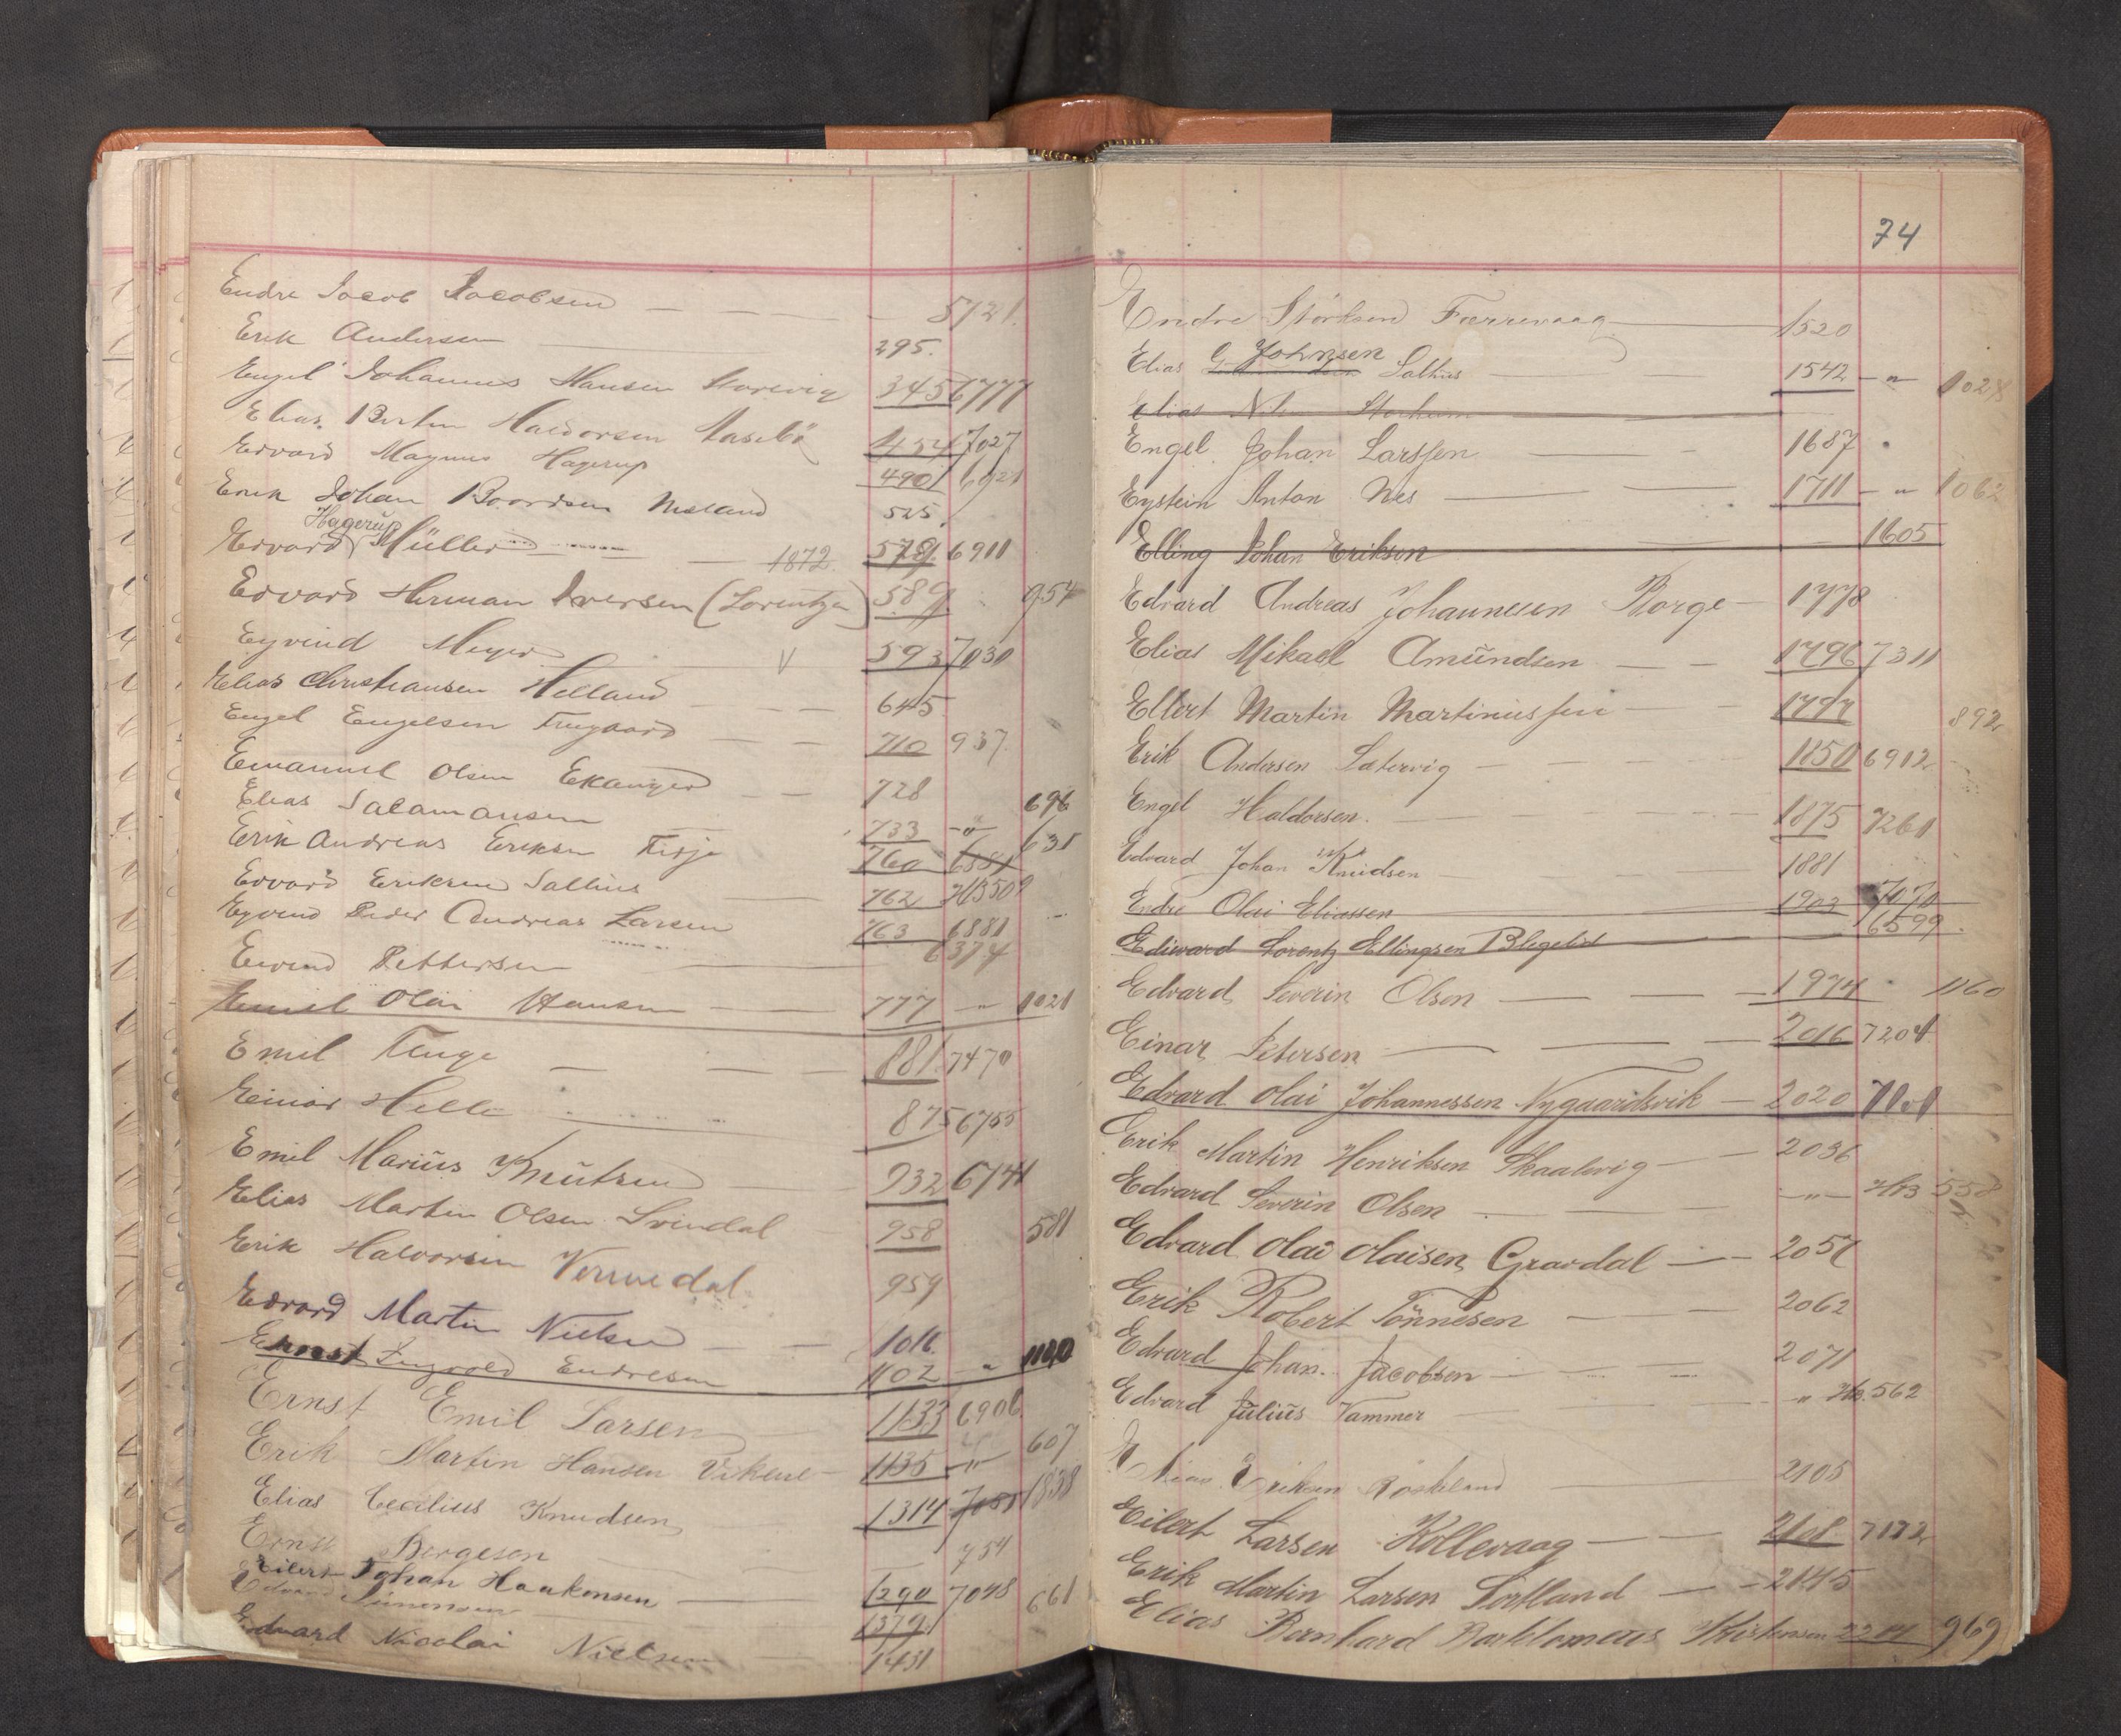 Endre Jacob Jacobsen — — — 5721.
Erik Andersen 295.
Engel Johannes Hansen Storevig 345 6777
Elias Bertin Haldorsen 454 7027
Edvard Magnus Hagerup 490
Erik Johan Baardsen Mæland 525.
Hagerup
Edvard Müller — 1872. 578 6911
Edvard Herman Iversen (Lorentzen) 589 954
Eyvind Meyer V 593 7031
Elias Christiansen Helland — — 645
Engel Engelsen — — 710 937
Emanuel Olsen Ekanger — — 728
Elias Salamonsen 733 -"- 696
Erik Andreas Eriksen 760 6581 631
Edvard Eriksen Salhus 762 HB 509
Eyvind Peder Andreas Larsen 763 6881
Eivind Pettersen — 6374
Emil Olai Hansen — — 777 - " - 1021
Emil Tenge — — — 881 7470
Einar Helle 875 6755
Emil Marius Knutsen — 932 6741
Elias Martin Olsen Svindal 958 581
Erik Halvorsen 959
Edvard Martin Nielsen — 1016.
Ernst Ingvald Endresen 1102 - " 1110
Ernst Emil Larsen 1133 6906
Erik Martin Hansen Vikene 1135 -"- 607
Elias Cecilius Knudsen 1314 7051 1838
Ernst Børgesen — 754
Eilert Johan Haakonsen — 1290 7048 661
Edvard Simonsen 1379
Edvard Nicolai Nielsen 1431
74
Endre Størksen Færrevaag — 1520
Johnsen
Elias G Salhus — 1542 - " - 1028
Elias
Engel Johan Larssen — - 1687 "
Eystein Anton Nes — — 1711 - " 1062
Elling Johan Eriksen 1605
Edvard Andreas Johannesen Borge - 1778
Elias Mikael Amundsen — - 1796 7311
Ellert Martin Martinussen — - 1797 892
Erik Andersen Satervig - - - 1850 6912
Engel Haldorsen. - - - 1875 7261
Edvard Johan Knudsen 1881
Endre Olai Eliassen 1903 7070
Edward Lorentz Ellingsen 6599
Edvard Severin Olsen — — — 1974 1160
Einar Petersen — — — 2016 7204
Edvard Olai Johannessen Nygaardsvik — 2020
Erik Martin Henriksen Skaalevig — - 2036
Edvard Severin Olsen — — - " - HB 558
Edvard Olai Olaisen Gravdal — - 2057
Erik Robert Tønnesen — - 2062
Edvard Johan. Jacobsen — — 2071
Edvard Julius Vammer " HB. 562
Eriksen Røskeland — 2105
Eilert Larsen Kollevaag — - 2108 7172
Erik Martin Larsen Sørtland — - 2145
Elias Bernhard Bartolomeus 969